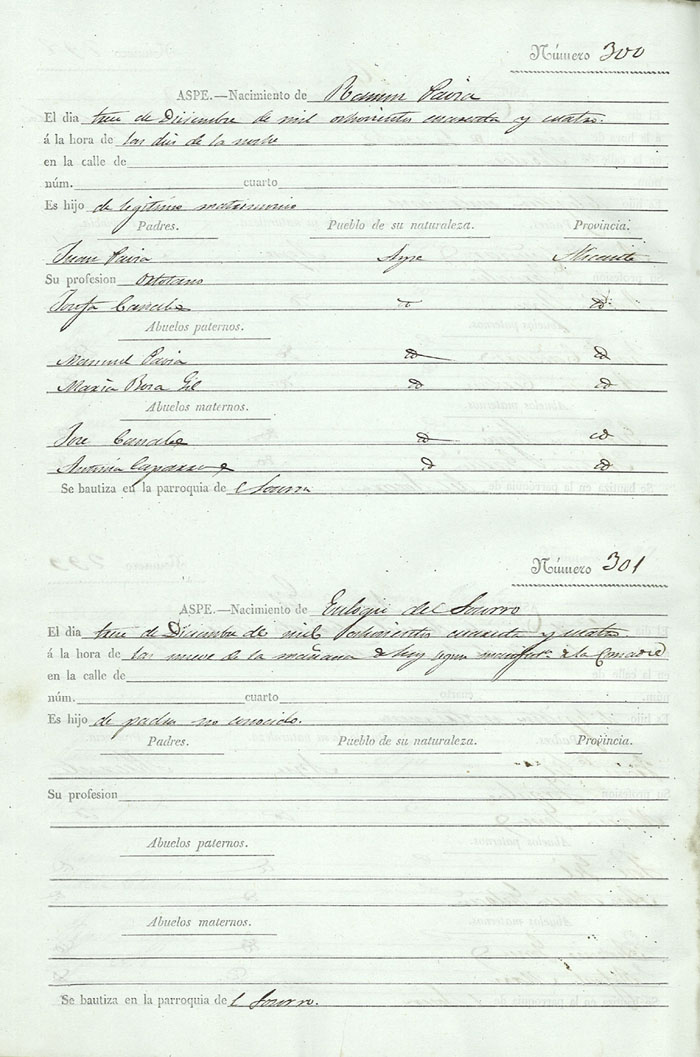 Número 300
ASPE.—Nacimiento de Ramon Pavia
El dia trece de Diciembre de mil ochocientos cuarenta y cuatro.
á la hora de las dos de la noche
en la calle de
núm. cuarto
Es hijo de legitimo matrimonio
Padres. Pueblo de su naturaleza. Provincia.
Juan Pavia Aspe Alicante
Su profesion
Josefa Canals id id
Abuelos paternos.
Manuel Pavia id id
Maria Rosa Gil id id
Abuelos maternos.
Jose id id
Antonia id id
Se bautiza en la parroquia de el Socorro
Número 301
ASPE.—Nacimiento de Eulogio del Socorro
El dia trece de Diciembre de mil ochocientos cuarenta y cuatro
á la hora de las nueve de la mañana de hoy segun la Comadre
en la calle de
núm. cuarto
Es hijo de padres no conocido.
Padres. Pueblo de su naturaleza. Provincia.
Su profesion
Abuelos paternos.
Abuelos maternos.
Se bautiza en la parroquia de el Socorro.